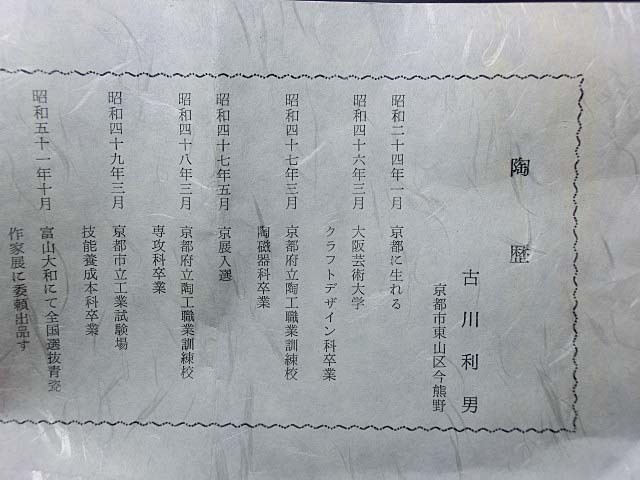 陶歴
古川利男
京都市東山区今熊野
昭和二十四年一月 京都に生れる
昭和四十六年三月 大阪芸術大学
クラフトデザイン科卒業
昭和四十七年三月 京都府立陶工職業訓練校
陶磁器科卒業
昭和四十七年五月 京展入選
昭和四十八年三月 京都府立陶工職業訓練校
専攻科卒業
昭和四十九年三月 京都市立工業試験場
技能養成本科卒業
昭和五十一年十月 富山大和にて全国選抜青瓷
作家展に委頼出品す